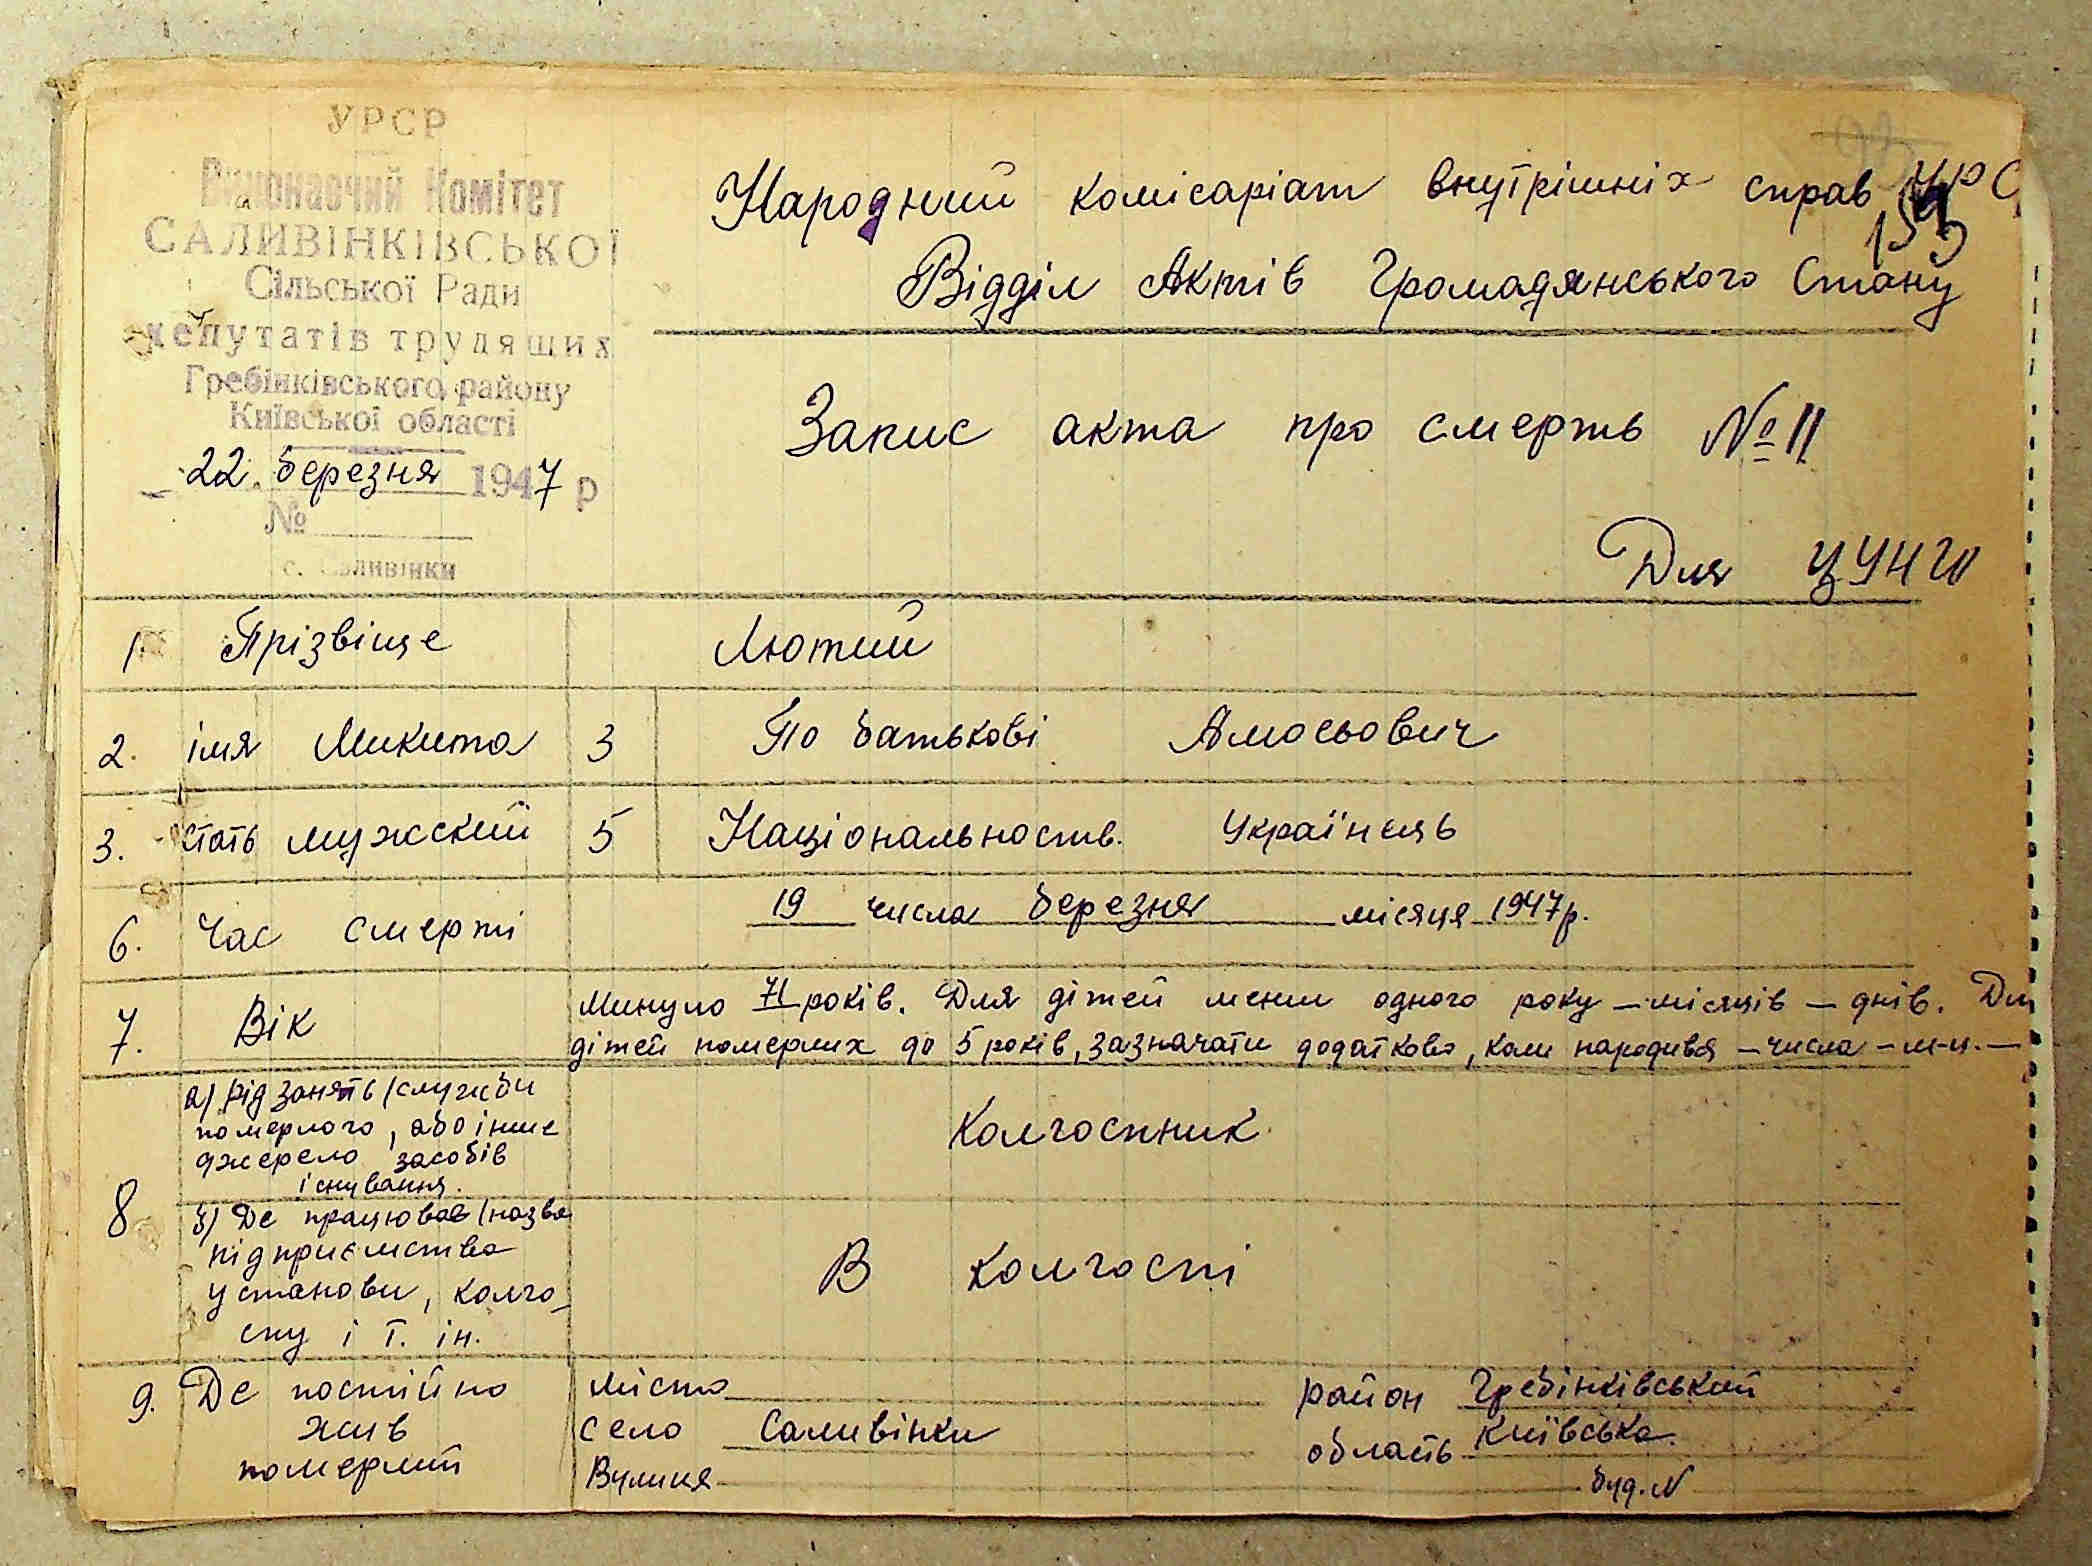 УРСР
Виконавчий Комітет
САЛИВІНКІВСЬКОЇ
Сільської Ради
депутатів трудящих
Гребінківського району
Київської області
22 березня 1947 р
№
с. Саливінки
Народний комісаріат внутрішніх справ УРС
Відділ Актів Громадянського Стану
Запис акта про смерть № 11
Для ЦУНГО
1. Прізвіще Лютий
2. імя Микита 3 По батькові Амосьович
3. стать мужский 5 Національность. Українець
6. Час смерті 19 числа березня місяця 1947р.
7. Вік Минуло 71 років. Для дітей менш одного року – місяців – днів. Для
дітей померлих до 5 років, зазначати додатково, коли народився – числа – м-ц. –
8 а) рід занять /служби
померлого, або інше
джерело засобів
існування.
Колгоспник
б) Де працював /назва
підприємства
установи, колго-
спу і т. ін.
В колгоспі
9. Де постійно
жив
померлий
місто район Гребінківський
село Саливінки область Київська.
Вулиця буд. N